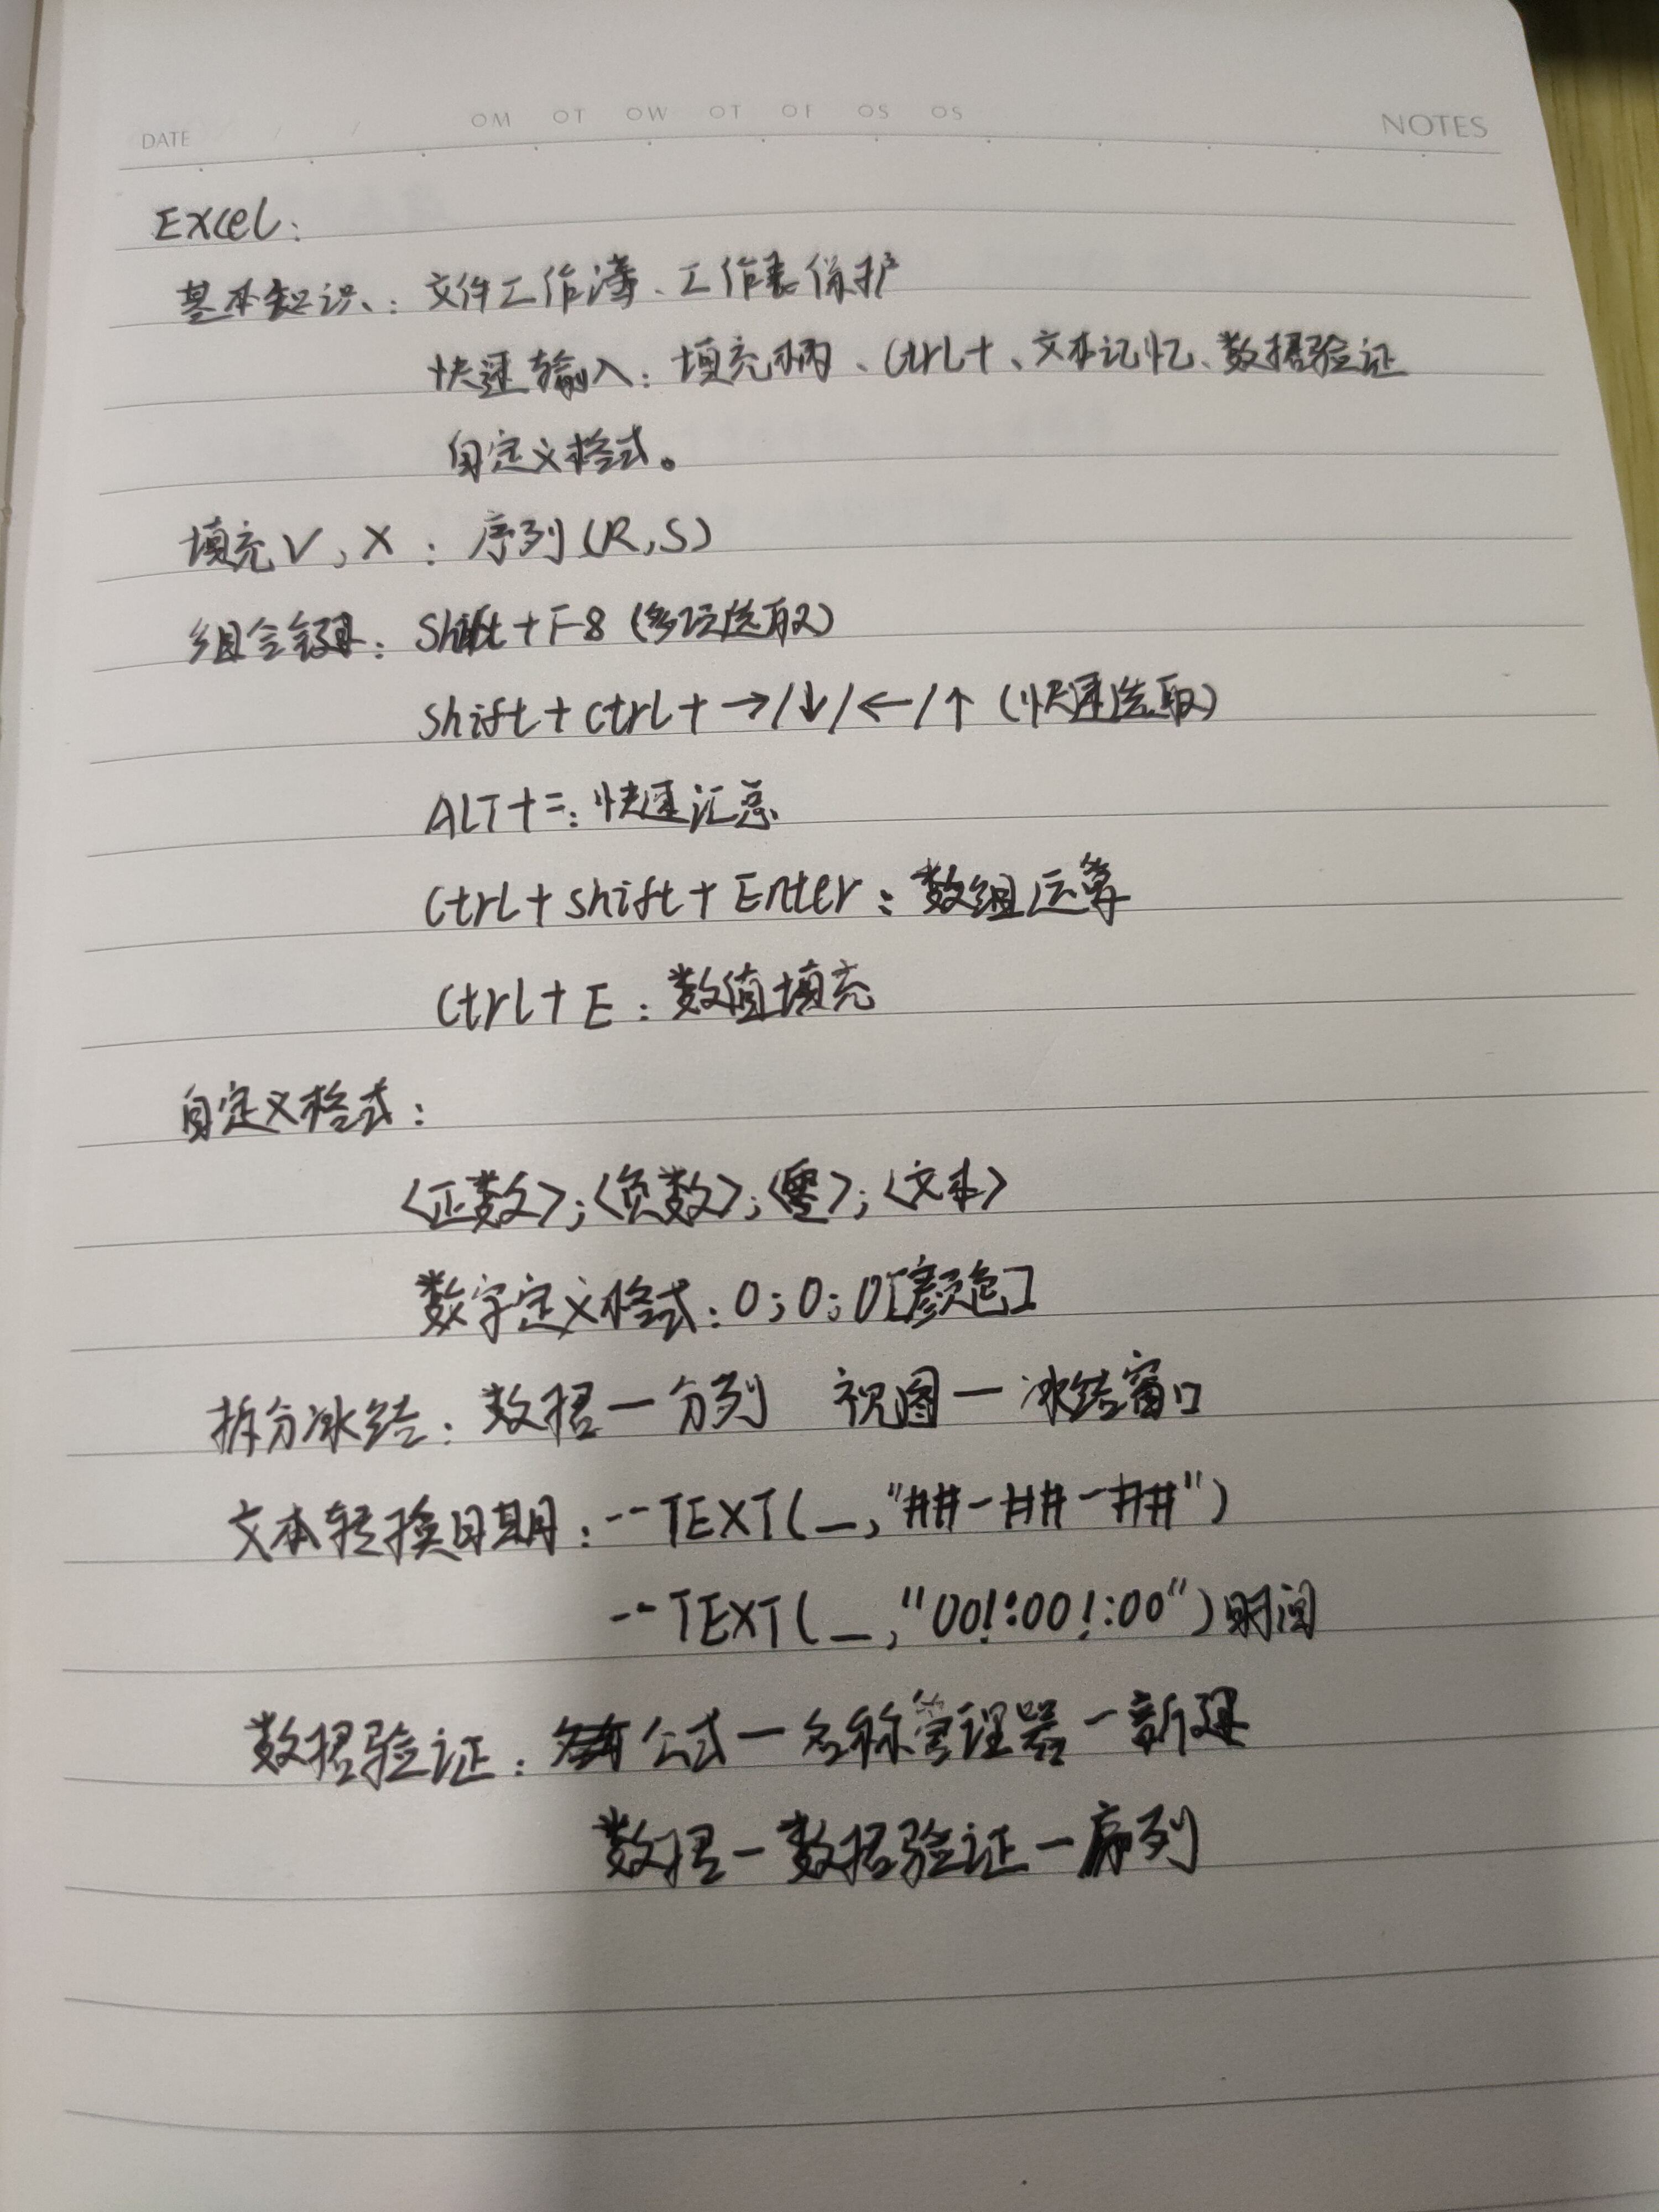 DATE / / OM OT OW OT OF OS OS NOTES
Excel:
基本知识:文件工作薄、工作表保护
快速输入:填充柄、Ctrl+、文本记忆、数据验证
自定义格式。
填充√,×:序列(R,S)
组合键:Shift+F8(多项选取)
Shift+Ctrl+→/↓/←/↑(快速选取)
ALT+=:快速汇总
Ctrl+Shift+Enter:数组运算
Ctrl+E:数值填充
自定义格式:
<正数>;<负数>;<零>;<文本>
数字定义格式:0;0;0[颜色]
拆分冰结:数据—分列 视图—冰结窗口
文本转换日期:--TEXT(_,"##-##-##")
--TEXT(_,"00!:00!:00")时间
数据验证:公式—名称管理器—新建
数据—数据验证—序列